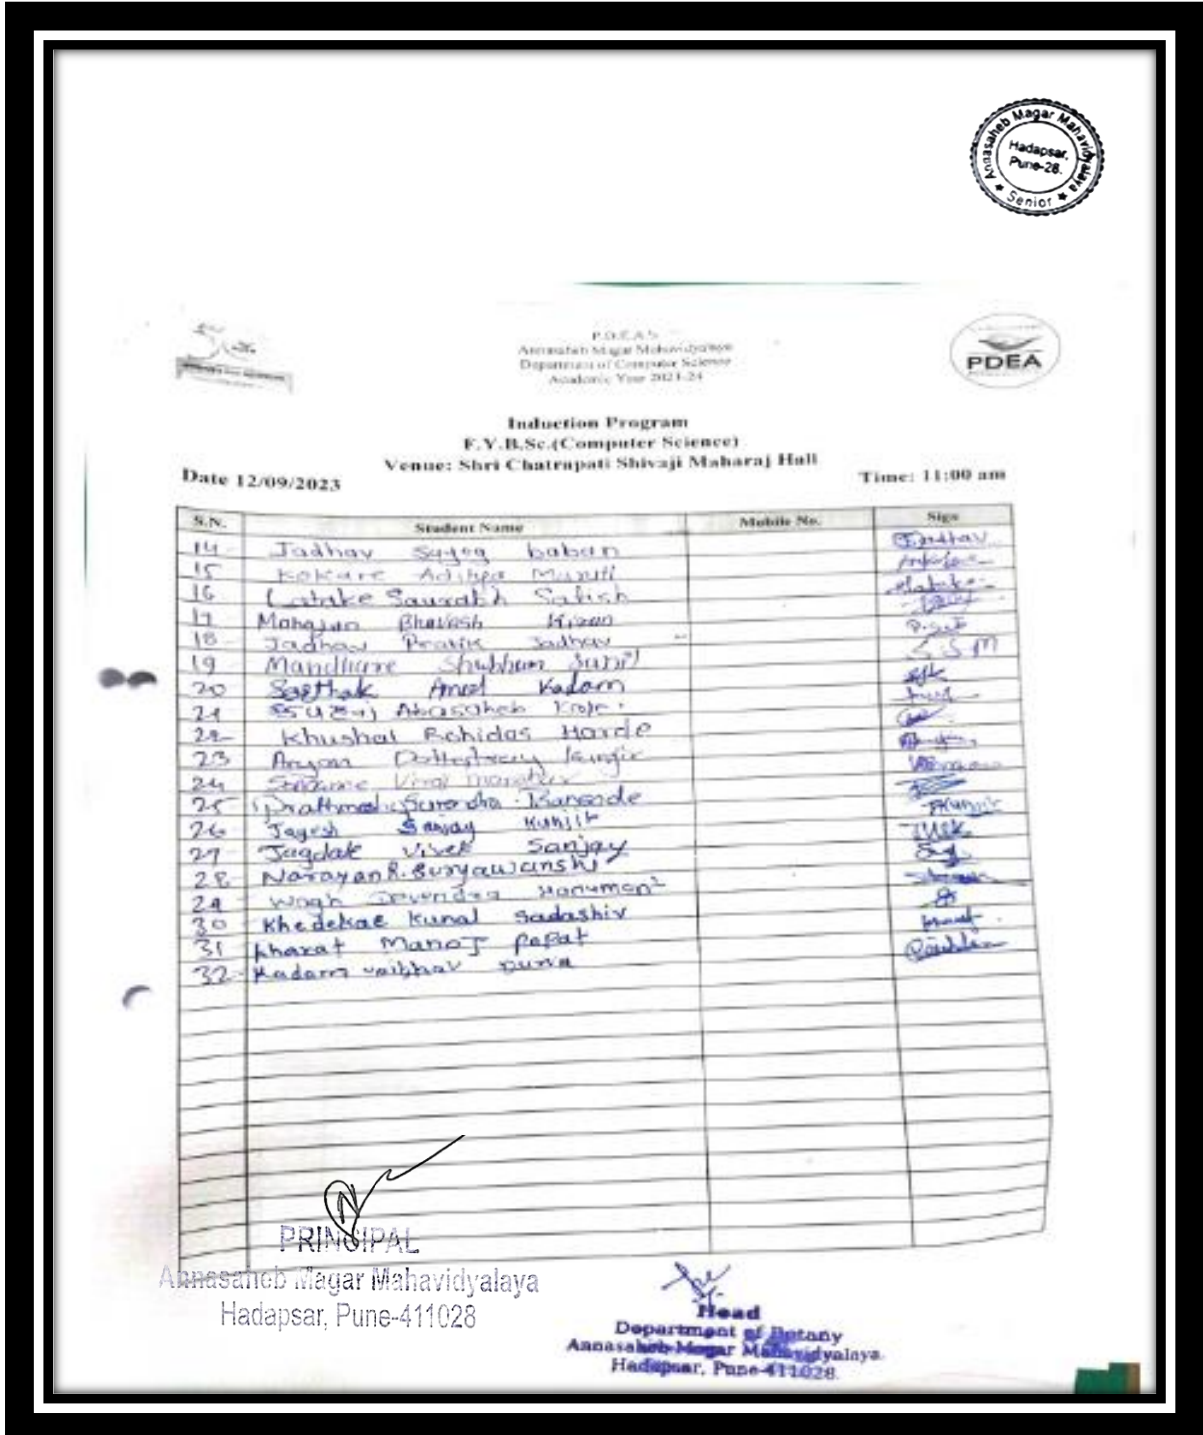 Annasaheb Magar Mahavidyalaya
Hadapsar,
Pune-28.
★ Senior ★
P.D.E.A'S
Annasaheb Magar Mahavidyalaya
Department of Computer Science
Academic Year 2023-24
PDEA
Induction Program
F.Y.B.Sc.(Computer Science)
Venue: Shri Chatrapati Shivaji Maharaj Hall
Date 12/09/2023
Time: 11:00 am
S.N. Student Name Mobile No. Sign
14 Jadhav baban Jadhav
15 Kokare Aditya Maruti
16 Latake Saurabh Satish
17 Mahajan Bhavesh Kiran
18 Jadhav Pratik Jadhav
19 Mandhare Shubham Sunil SSM
20 Sarthak Amol Kadam
21 Abasaheb
22 Khushal Rohidas Harde
23 Aryan Dattatray Kunjir
24 Viraj
25 Surendra Bansode
26 Jayesh Sanjay Kunjir
27 Jagdale Vivek Sanjay
28 Narayan R. Suryawanshi
29 Wagh Devendra Hanumant
30 Khedekar Kunal Sadashiv
31 Kharat Manoj Popat
32 Kadam vaibhav
PRINCIPAL
Annasaheb Magar Mahavidyalaya
Hadapsar, Pune-411028
Head
Department of Botany
Annasaheb Magar Mahavidyalaya
Hadapsar, Pune-411028.